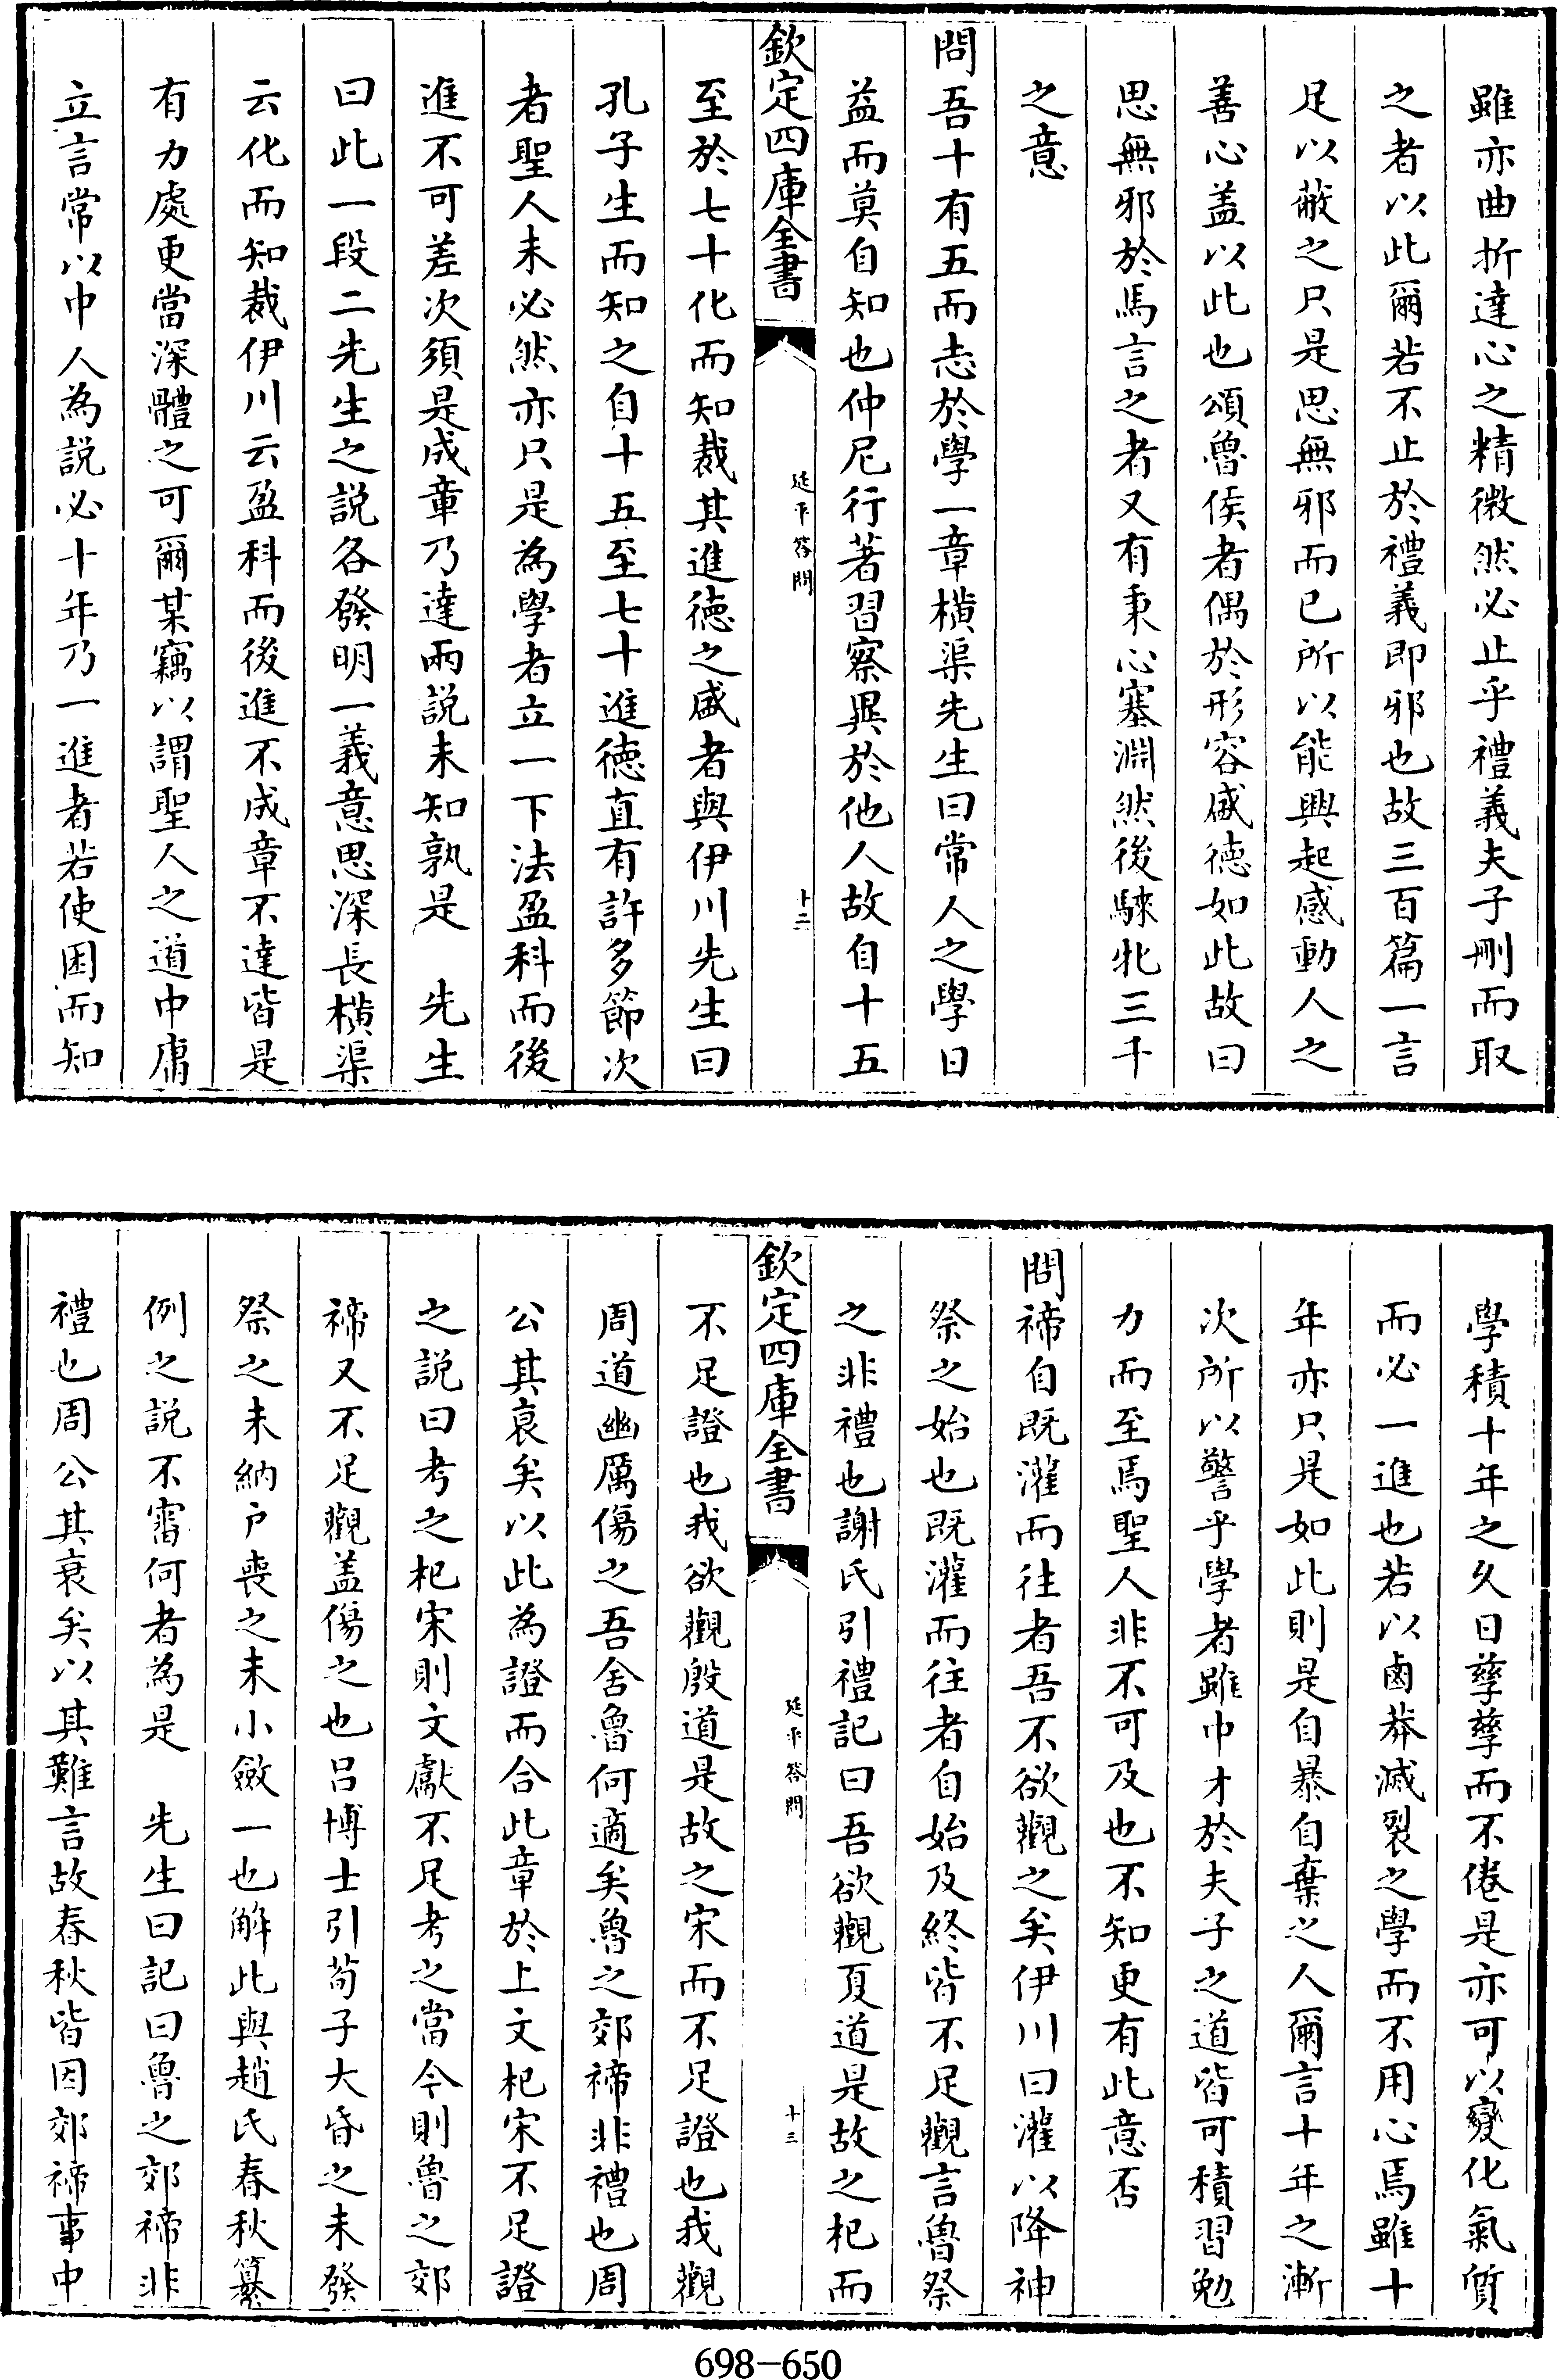 雖亦曲折達心之精微然必止乎禮義夫子刪而取
之者以此爾若不止於禮義即邪也故三百篇一言
足以蔽之只是思無邪而已所以能興起感動人之
善心盖以此也頌魯侯者偶於形容盛徳如此故曰
思無邪於馬言之者又有秉心塞淵然後騋牝三千
之意
問吾十有五而志於學一章橫渠先生曰常人之學日
益而莫自知也仲尼行著習察異於他人故自十五
欽定四庫全書
延平答問
十二
至於七十化而知裁其進徳之盛者與伊川先生曰
孔子生而知之自十五至七十進徳直有許多節次
者聖人未必然亦只是為學者立一下法盈科而後
進不可差次須是成章乃達兩説未知孰是　先生
曰此一段二先生之説各發明一義意思深長橫渠
云化而知裁伊川云盈科而後進不成章不達皆是
有力處更當深體之可爾某竊以謂聖人之道中庸
立言常以中人為説必十年乃一進者若使困而知
學積十年之久日孳孳而不倦是亦可以變化氣質
而必一進也若以鹵莽滅裂之學而不用心焉雖十
年亦只是如此則是自暴自棄之人爾言十年之漸
次所以警乎學者雖中才於夫子之道皆可積習勉
力而至焉聖人非不可及也不知更有此意否
問禘自既灌而往者吾不欲觀之矣伊川曰灌以降神
祭之始也既灌而往者自始及終皆不足觀言魯祭
之非禮也謝氏引禮記曰吾欲觀夏道是故之杞而
欽定四庫全書
延平答問
十三
不足證也我欲觀殷道是故之宋而不足證也我觀
周道幽厲傷之吾舍魯何適矣魯之郊禘非禮也周
公其衰矣以此為證而合此章於上文杞宋不足證
之説曰考之杞宋則文獻不足考之當今則魯之郊
禘又不足觀盖傷之也吕博士引荀子大昏之未發
祭之未納户喪之未小斂一也解此與趙氏春秋纂
例之説不審何者為是　先生曰記曰魯之郊禘非
禮也周公其衰矣以其難言故春秋皆因郊禘事中
698-650